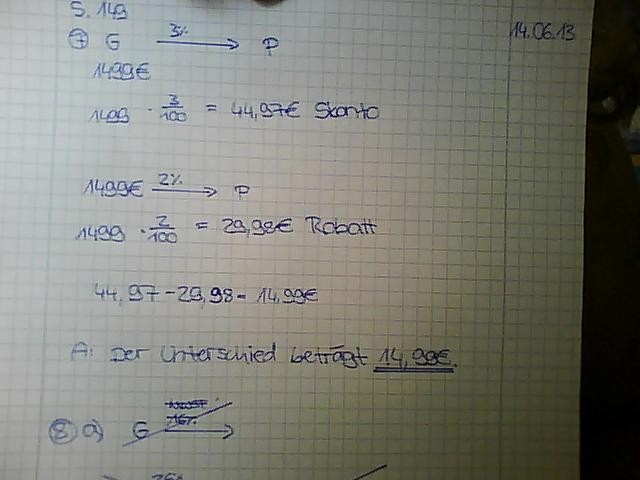 S. 149
14.06.13
⑦ G 3% → P
1499€
1499 · 3/100 = 44,97€ Skonto
1499€ 2% → P
1499 · 2/100 = 29,98€ Rabatt
44,97 - 29,98 = 14,99€
A: Der Unterschied beträgt 14,99€.
⑧ a) G →